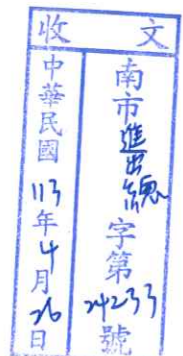 收文
南市進出總字第24233號
中華民國113年4月26日